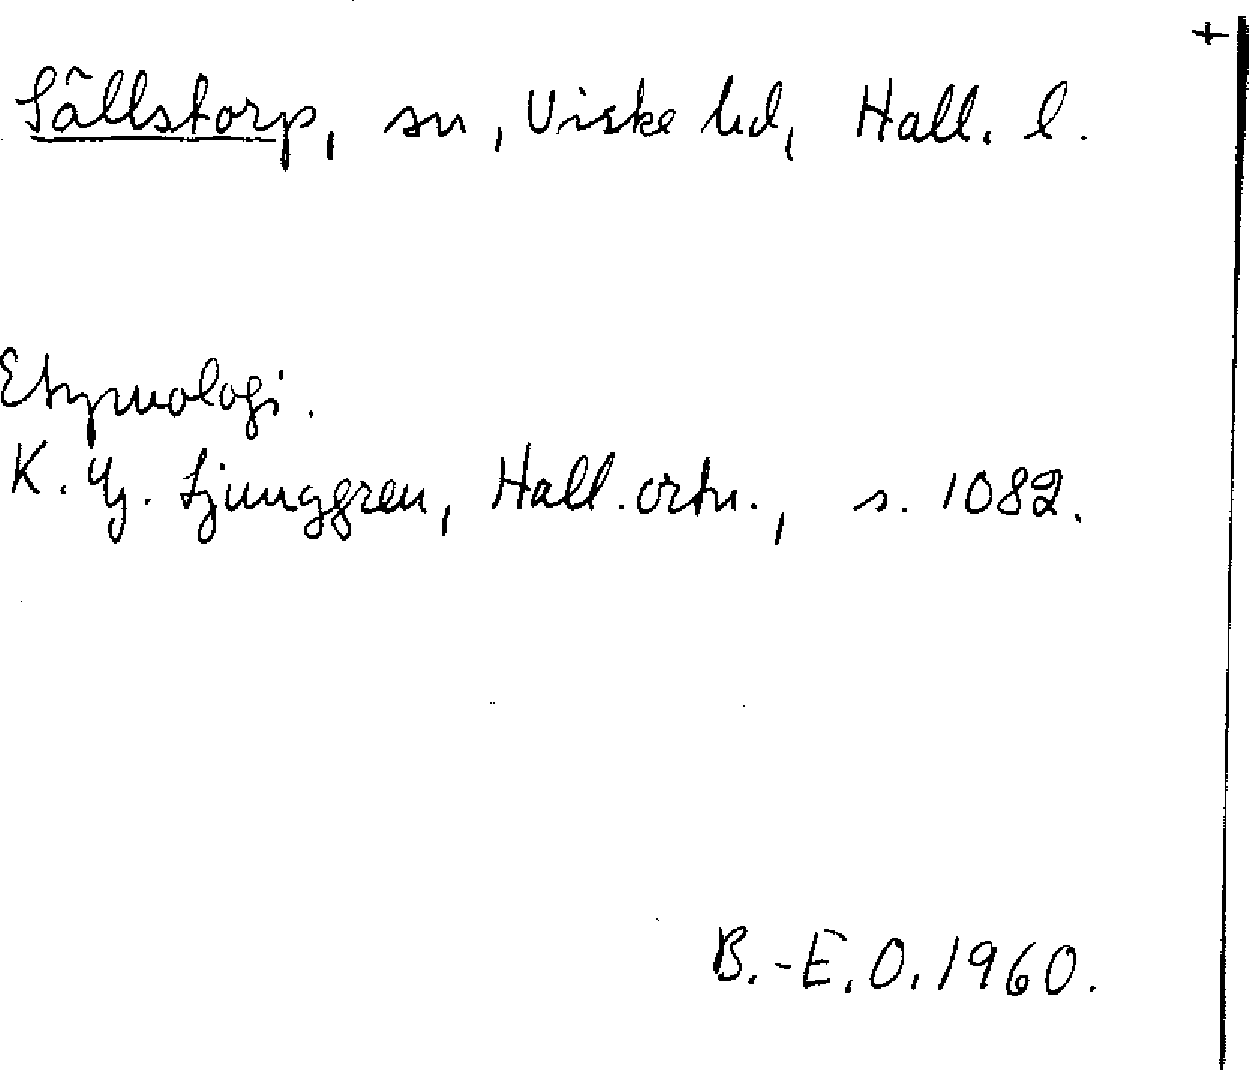 +
Sällstorp, sn, Viske hd, Hall. l.
Etymologi.
K. G. Ljunggren, Hall. ortn., s. 1082.
B.-E. O. 1960.